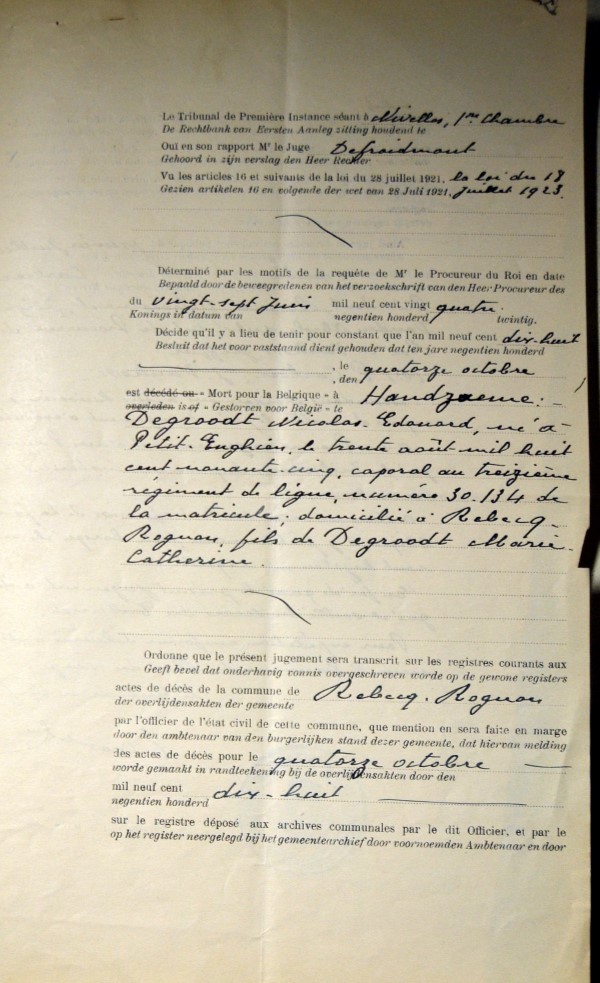 Le Tribunal de Première Instance séant à Nivelles, 1re Chambre
De Rechtbank van Eersten Aanleg zitting houdend te
Ouï en son rapport Mr le Juge Defroidmont
Gehoord in zijn verslag den Heer Rechter
Vu les articles 16 et suivants de la loi du 28 juillet 1921, la loi du 18
Gezien artikelen 16 en volgende der wet van 28 Juli 1921, juillet 1923.
Déterminé par les motifs de la requête de Mr le Procureur du Roi en date
Bepaald door de beweegredenen van het verzoekschrift van den Heer Procureur des
du vingt-sept Juin mil neuf cent vingt quatre.
Konings in datum van negentien honderd twintig.
Décide qu'il y a lieu de tenir pour constant que l'an mil neuf cent dix-huit
Besluit dat het voor vaststaand dient gehouden dat ten jare negentien honderd
, le quatorze octobre
, den
est décédé ou « Mort pour la Belgique » à Handzaeme: -
overleden is of « Gestorven voor België » te
Degroodt Nicolas-Edouard, né à
Petit-Enghien, le trente août mil huit
cent nonante-cinq, caporal au treizième
régiment de ligne, numéro 30.134 de
la matricule; domicilié à Rebecq-
Rognon, fils de Degroodt Marie-
Catherine.
Ordonne que le présent jugement sera transcrit sur les registres courants aux
Geeft bevel dat onderhavig vonnis overgeschreven worde op de gewone registers
actes de décès de la commune de Rebecq-Rognon
der overlijdensakten der gemeente
par l'officier de l'état civil de cette commune, que mention en sera faite en marge
door den ambtenaar van den burgerlijken stand dezer gemeente, dat hiervan melding
des actes de décès pour le quatorze octobre
worde gemaakt in randteekening bij de overlijdensakten door den
mil neuf cent dix-huit
negentien honderd
sur le registre déposé aux archives communales par le dit Officier, et par le
op het register neergelegd bij het gemeentearchief door voornoemden Ambtenaar en door